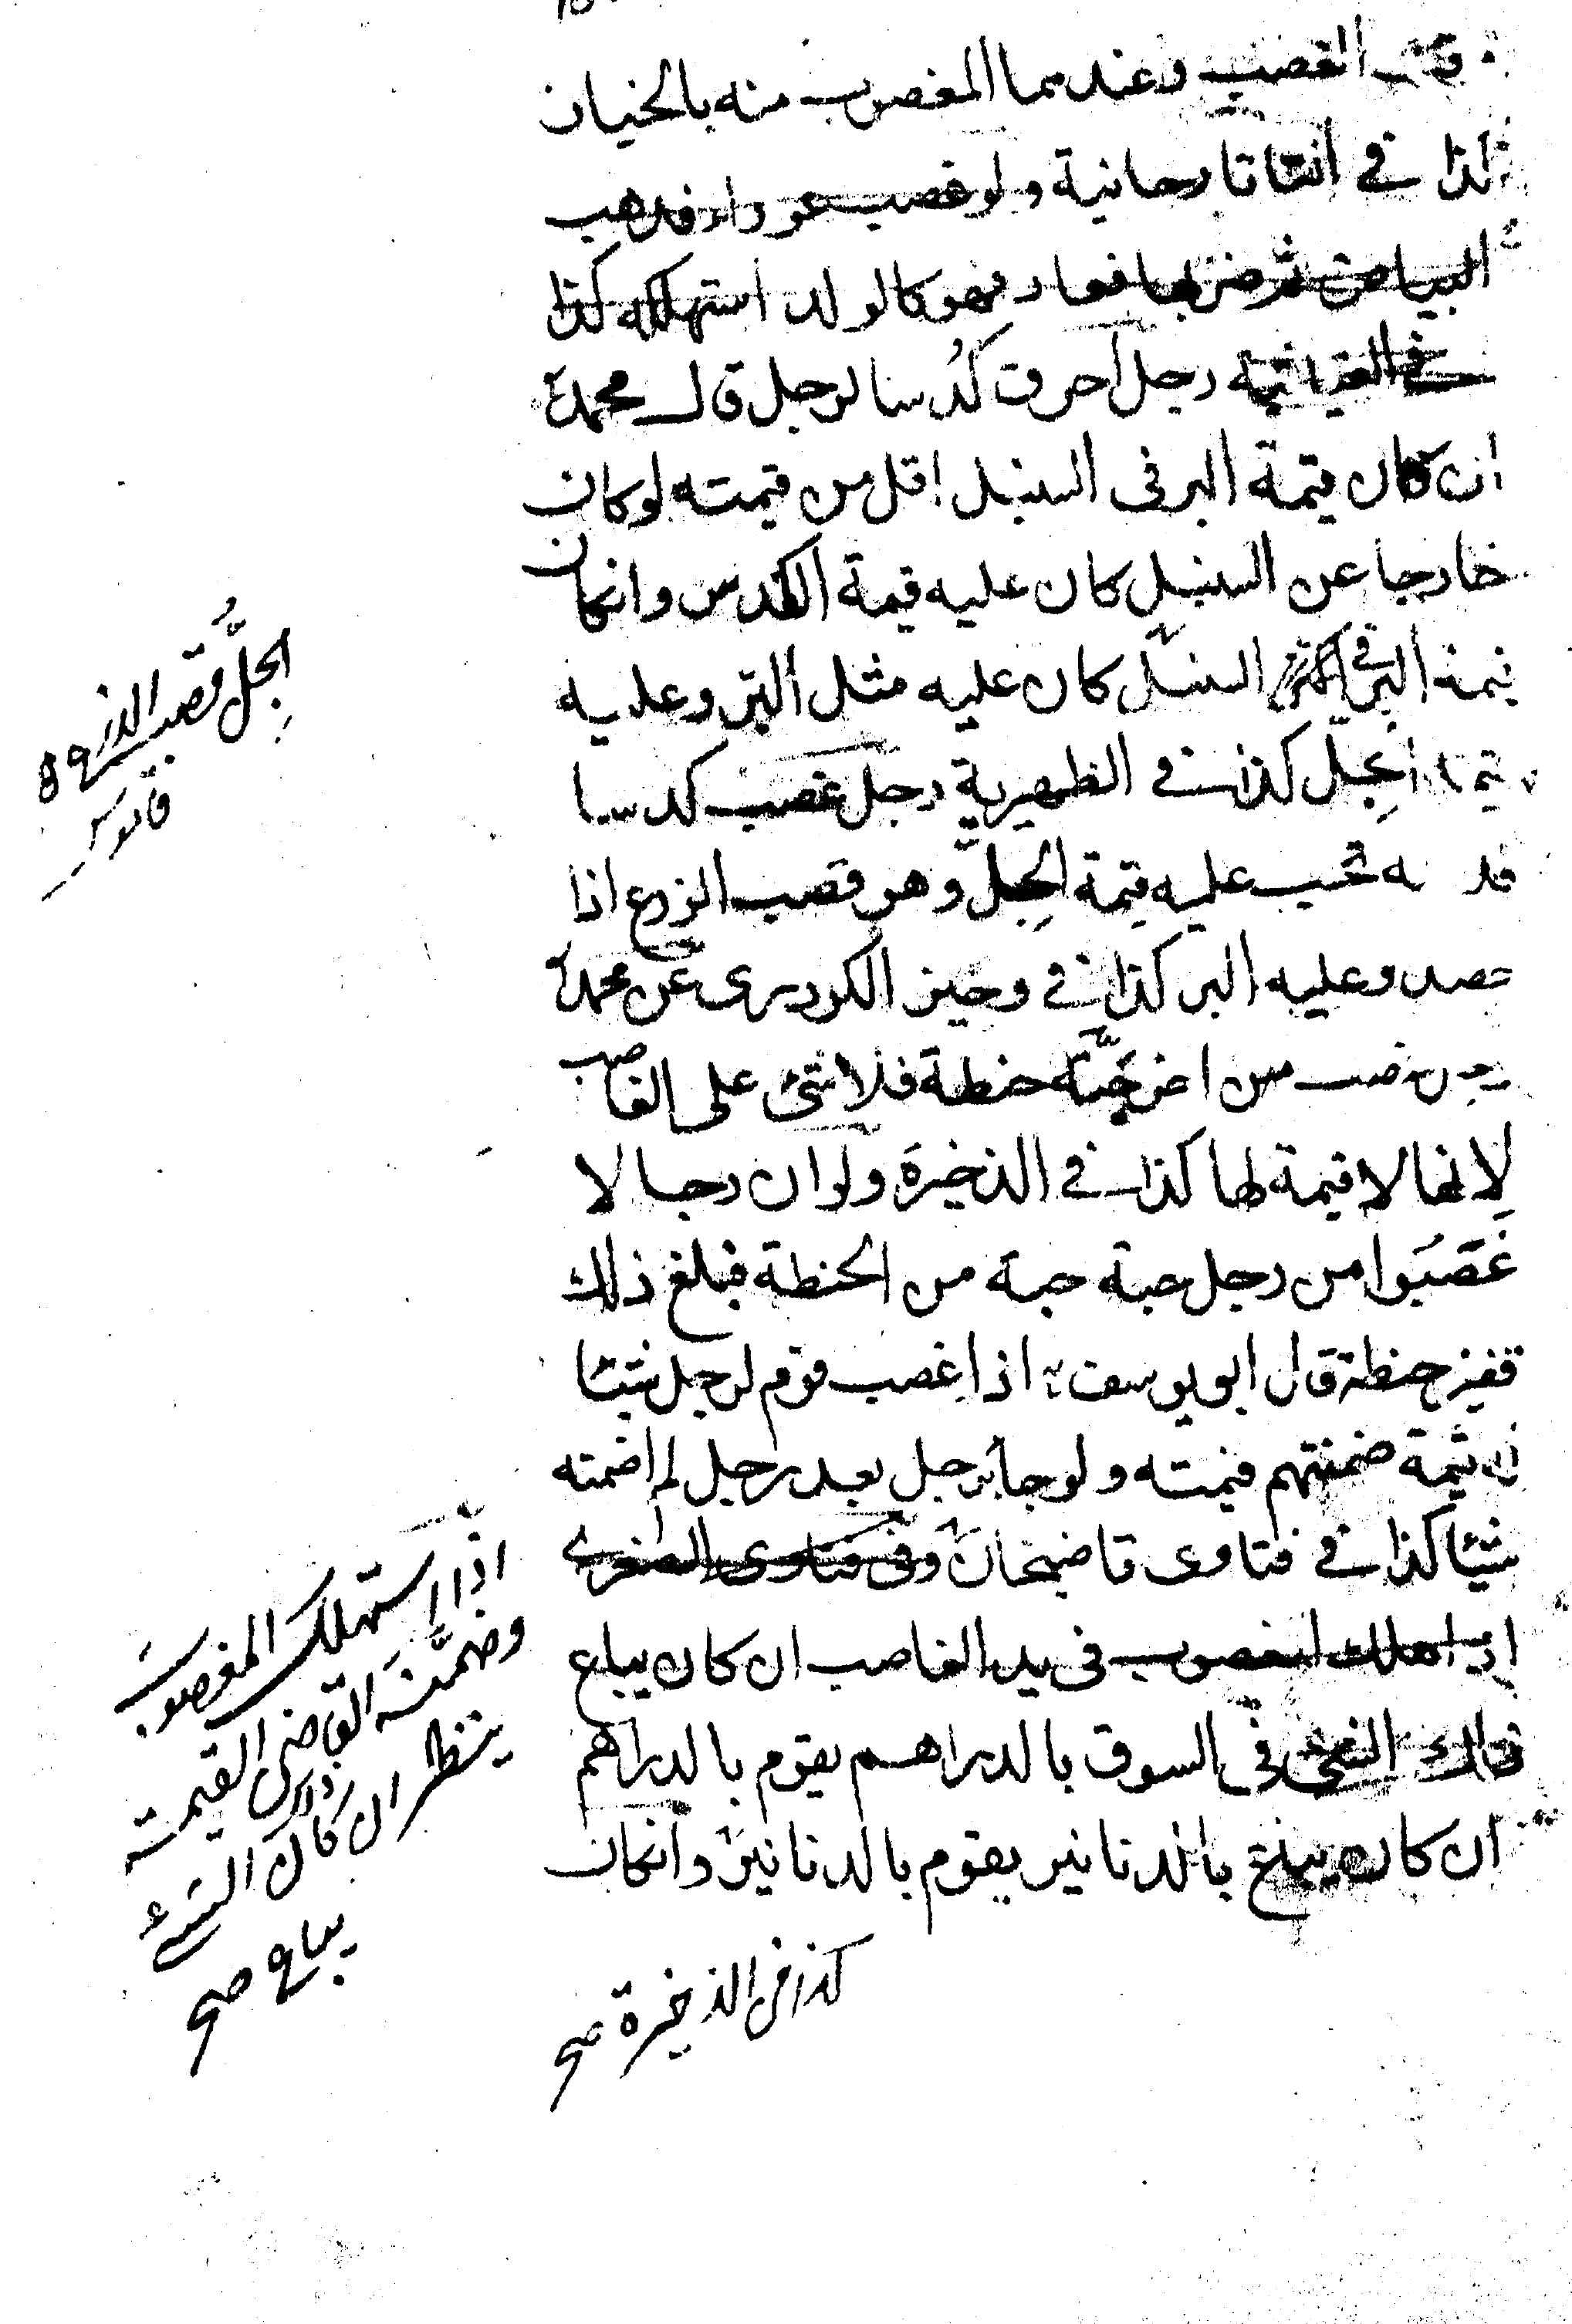 وقت الغصب وعندهما المغصوب منه بالخيار
كذا في التتارخانية ولو غصب
البياض ثم ضربها فعاد فهو كالولد استهلكه كذا
في الغياثية رجل احرق كُدسا لرجل قال محمد
ان كان قيمة البر في السنبل اقل من قيمته لو كان
خارجا عن السنبل كان عليه قيمة الكدس وان كان
قيمة البر في السنبل كان عليه مثل البر وعليه
قيمة الجِلّ كذا في الظهيرية رجل غصب كدسا
تجب عليه قيمة الجِلّ وهو قصب الزرع اذا
حصد وعليه البر كذا في وجيز الكردري عن محمد
رجل غصب من اخر حبّة حنطة فلا شئ على الغاصب
لانها لا قيمة لها كذا في الذخيرة ولو ان رجالا
غَصَبوا من رجل حبة حبة من الحنطة فبلغ ذلك
قفيز حنطة قال ابو يوسف اذا غصب قوم لرجل شيئا
له قيمة ضمنتهم قيمته ولو جاء رجل بعد رجل لم اضمنه
شيئا كذا في فتاوى قاضيخان وفى فتاوى الصغرى
اذا هلك المغصوب في يد الغاصب ان كان يباع
ذلك الشئ في السوق بالدراهم يقوم بالدراهم
ان كان يباع بالدنانير يقوم بالدنانير وان كان
الجُِلّ قصب الزرع ه
قاموس
اذا استهلك المغصوب
وضمّنه القاضى القيمة
ينظر ان كان الشئ
يباع صح
كذا في الذخيرة صح